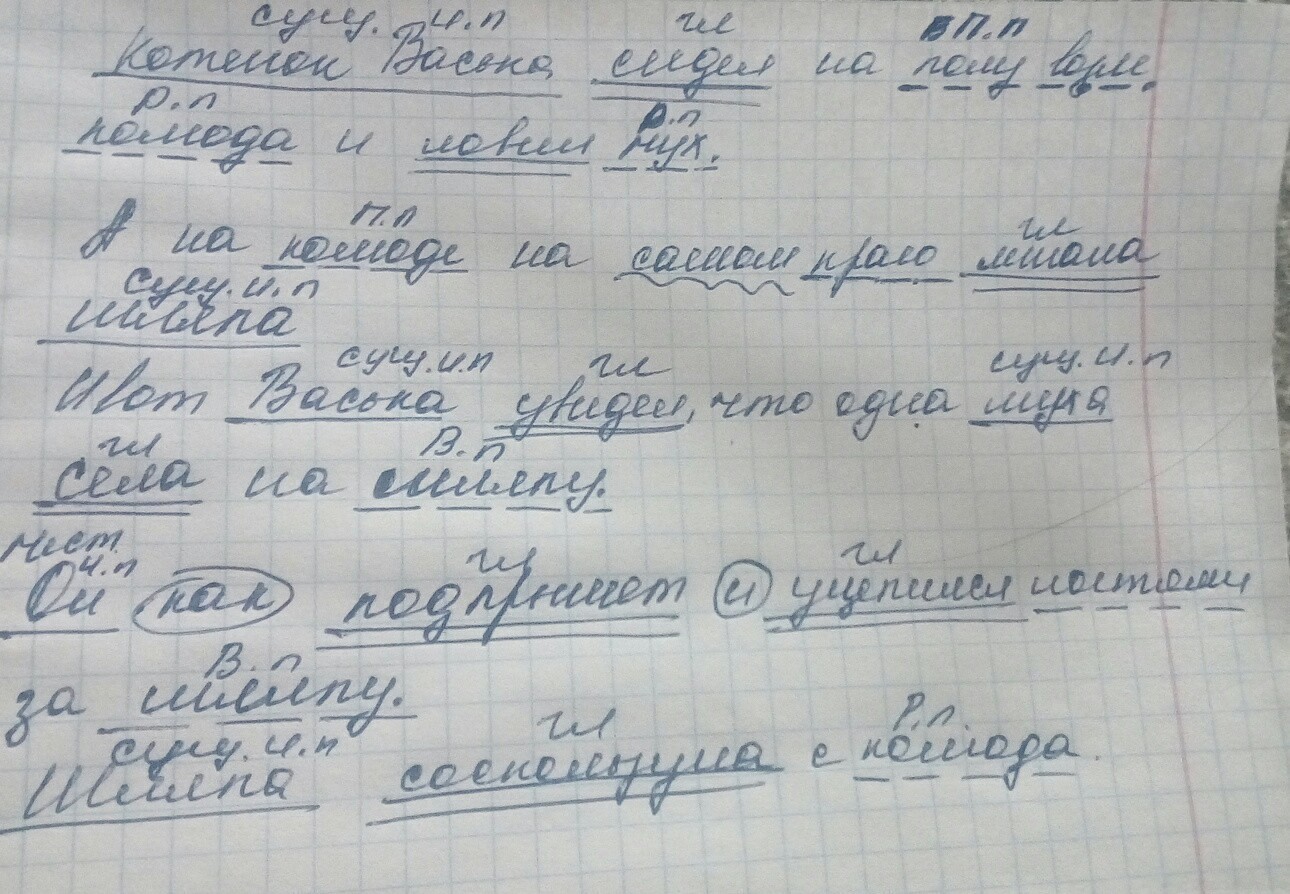 сущ. И.п гл П.п
Котенок Васька сидел на полу возле
Р.п Р.п
комода и ловил мух.
П.п гл
А на комоде на самом краю лежала
сущ. и.п
шляпа
сущ. и.п гл сущ. и.п
И вот Васька увидел, что одна муха
гл В.п
села на шляпу.
мест. и.п гл гл
Он как подпрыгнет и уцепился когтями
В.п
за шляпу.
сущ. и.п гл Р.п.
Шляпа соскользнула с комода.